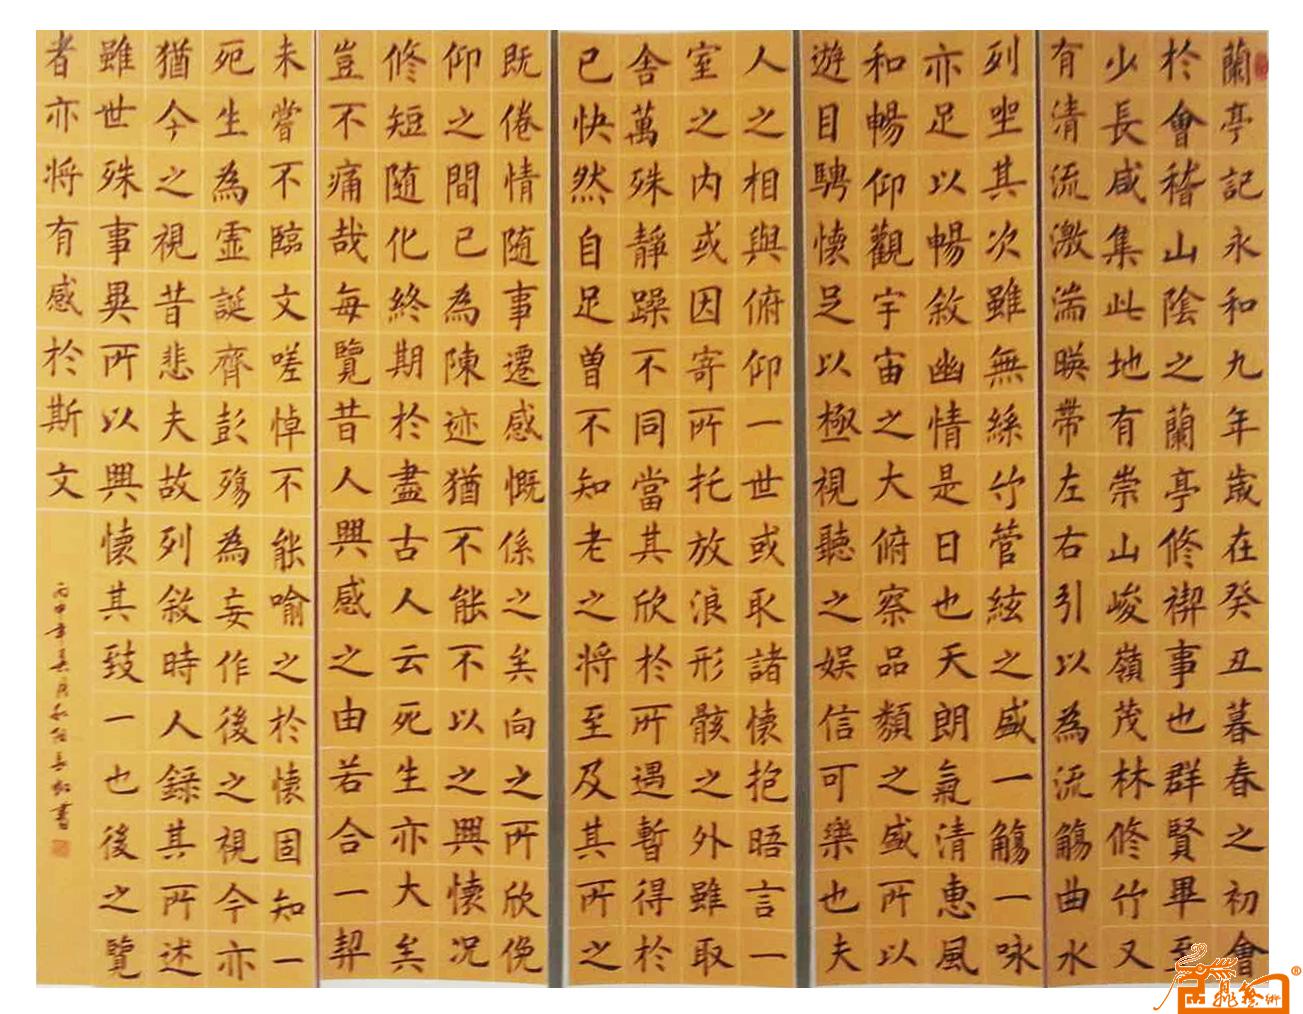 蘭亭記永和九年歲在癸丑暮春之初會
於會稽山陰之蘭亭修禊事也群賢畢至
少長咸集此地有崇山峻嶺茂林修竹又
有清流激湍暎帶左右引以為流觴曲水
列坐其次雖無絲竹管絃之盛一觴一咏
亦足以暢敘幽情是日也天朗氣清惠風
和暢仰觀宇宙之大俯察品類之盛所以
遊目騁懷足以極視聽之娛信可樂也夫
人之相與俯仰一世或取諸懷抱晤言一
室之內或因寄所托放浪形骸之外雖取
舍萬殊靜躁不同當其欣於所遇暫得於
已快然自足曾不知老之將至及其所之
既倦情随事遷感慨係之矣向之所欣俛
仰之間已為陳迹猶不能不以之興懷況
修短随化終期於盡古人云死生亦大矣
豈不痛哉每覽昔人興感之由若合一契
未嘗不臨文嗟悼不能喻之於懷固知一
死生為虛誕齊彭殤為妄作後之視今亦
猶今之視昔悲夫故列敘時人錄其所述
雖世殊事異所以興懷其致一也後之覽
者亦將有感於斯文
丙申年書